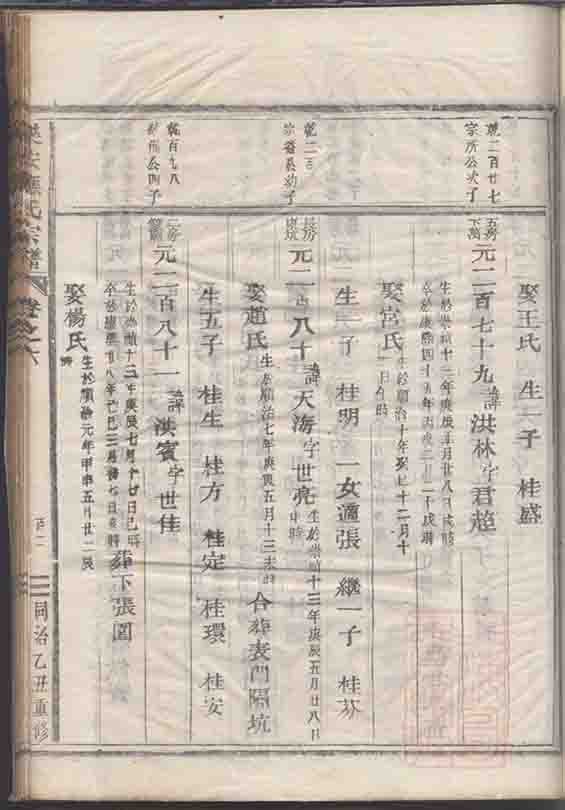 娶王氏 生一子 桂盛
乾二百廿七
宗所公次子
五房
下萬
元二百七十九諱洪林字君超
生於崇禎十三年庚辰
卒於康熙四十五年丙戌
娶宮氏
生於順治十年癸巳十二月十
生一子 桂明 一女適張 繼一子 桂芬
乾二百
元二百八十諱天海字世亮
生於崇禎十三年庚辰五月廿八日
娶趙氏
生於順治七年庚寅五月十三未時
合葬表門隔坑
生五子 桂生 桂方 桂定 桂環 桂安
乾百九八
元二百八十一諱洪賓字世佳
生於崇禎十三年庚辰七月十七日巳時
卒於康熙廿八年己巳三月初七日
葬下張園
娶楊氏
生於順治元年甲申五月廿二辰
時
氏宗譜
卷之六
同治乙丑重修